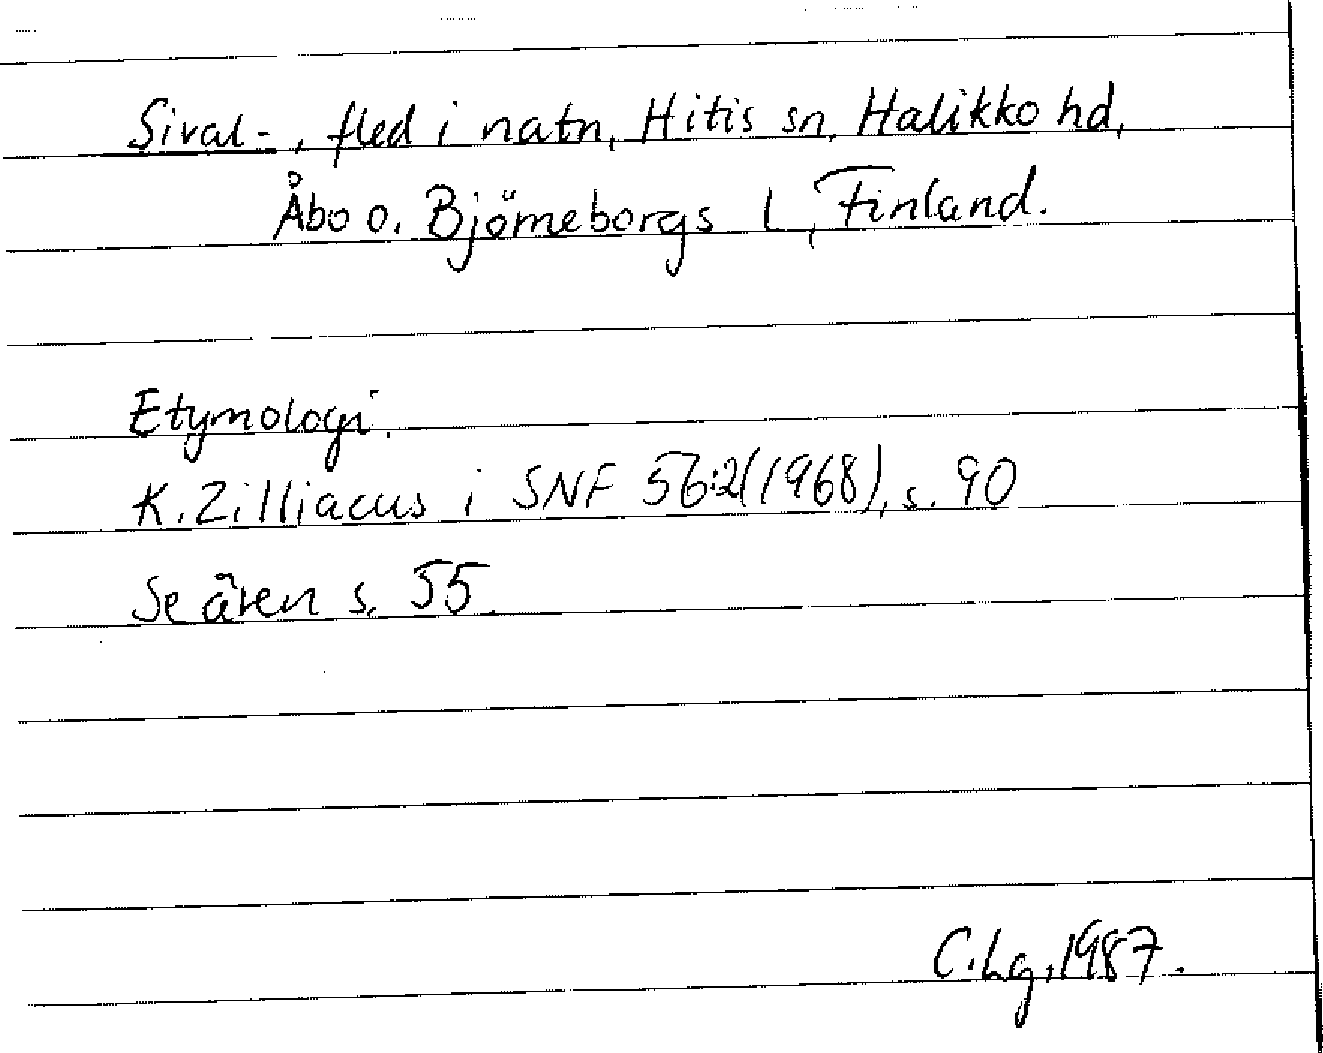 Sival-, fled i natn, Hitis sn, Halikko hd,
Åbo o. Björneborgs l, Finland.
Etymologi.
K. Zilliacus i SNF 56:2(1968), s. 90
Se även s. 55.
C. Lg, 1987.